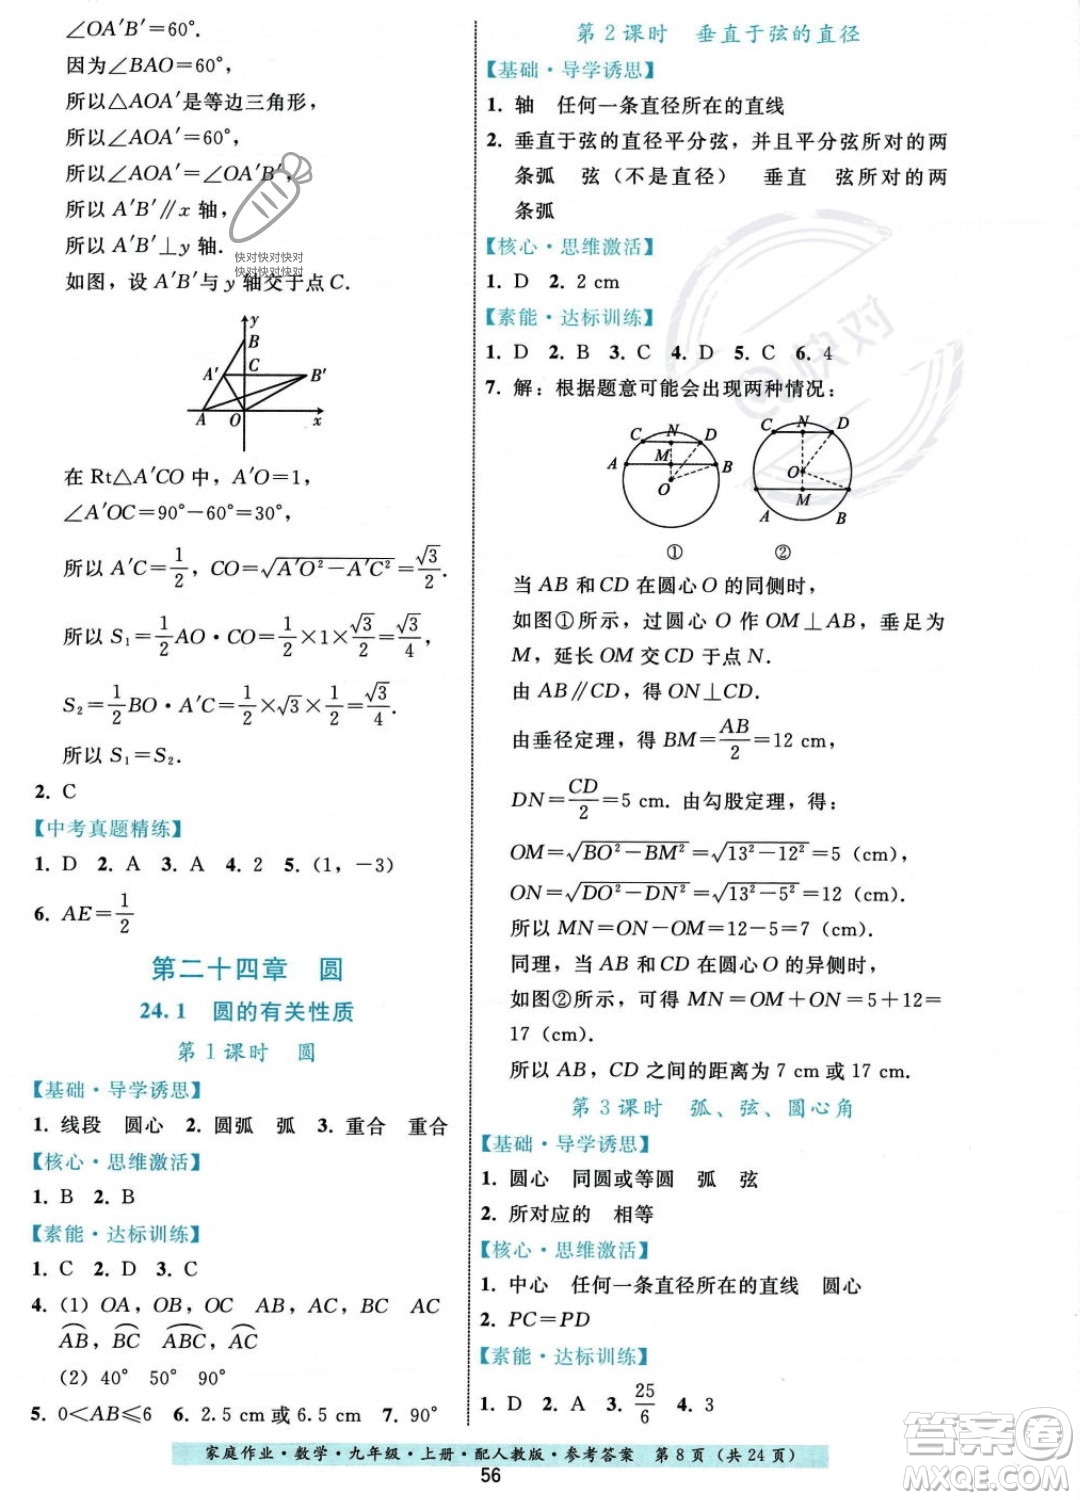 ∠OA′B′=60°.
因为∠BAO=60°,
所以△AOA′是等边三角形,
所以∠AOA′=60°,
所以∠AOA′=∠OA′B′,
所以 A′B′∥x 轴,
所以 A′B′⊥y 轴.
如图,设 A′B′与 y 轴交于点 C.
y
B
A′ C B′
A O x
在 Rt△A′CO 中,A′O=1,
∠A′OC=90°-60°=30°,
所以 A′C=1/2, CO=√(A′O²-A′C²)=√3/2.
所以 S₁=1/2 AO·CO=1/2×1×√3/2=√3/4,
S₂=1/2 BO·A′C=1/2×√3×1/2=√3/4.
所以 S₁=S₂.
2. C
【中考真题精练】
1. D 2. A 3. A 4. 2 5. (1,-3)
6. AE=1/2
第二十四章 圆
24.1 圆的有关性质
第1课时 圆
【基础·导学诱思】
1. 线段 圆心 2. 圆弧 弧 3. 重合 重合
【核心·思维激活】
1. B 2. B
【素能·达标训练】
1. C 2. D 3. C
4. (1) OA, OB, OC AB, AC, BC AC
⌒AB, ⌒BC ⌒ABC, ⌒AC
(2) 40° 50° 90°
5. 0<AB≤6 6. 2.5 cm 或 6.5 cm 7. 90°
第2课时 垂直于弦的直径
【基础·导学诱思】
1. 轴 任何一条直径所在的直线
2. 垂直于弦的直径平分弦,并且平分弦所对的两
条弧 弦(不是直径) 垂直 弦所对的两
条弧
【核心·思维激活】
1. D 2. 2 cm
【素能·达标训练】
1. D 2. B 3. C 4. D 5. C 6. 4
7. 解:根据题意可能会出现两种情况:
C N D
A M B
O
①
C N D
O
M
A B
②
当 AB 和 CD 在圆心 O 的同侧时,
如图①所示,过圆心 O 作 OM⊥AB,垂足为
M,延长 OM 交 CD 于点 N.
由 AB∥CD,得 ON⊥CD.
由垂径定理,得 BM=AB/2=12 cm,
DN=CD/2=5 cm. 由勾股定理,得:
OM=√(BO²-BM²)=√(13²-12²)=5 (cm),
ON=√(DO²-DN²)=√(13²-5²)=12 (cm),
所以 MN=ON-OM=12-5=7 (cm).
同理,当 AB 和 CD 在圆心 O 的异侧时,
如图②所示,可得 MN=OM+ON=5+12=
17 (cm).
所以 AB,CD 之间的距离为 7 cm 或 17 cm.
第3课时 弧、弦、圆心角
【基础·导学诱思】
1. 圆心 同圆或等圆 弧 弦
2. 所对应的 相等
【核心·思维激活】
1. 中心 任何一条直径所在的直线 圆心
2. PC=PD
【素能·达标训练】
1. D 2. A 3. 25/6 4. 3
家庭作业·数学·九年级·上册·配人教版·参考答案 第8页(共24页)
56
快对快对快对
快对快对快对
快对
答案圈
MXQE.COM